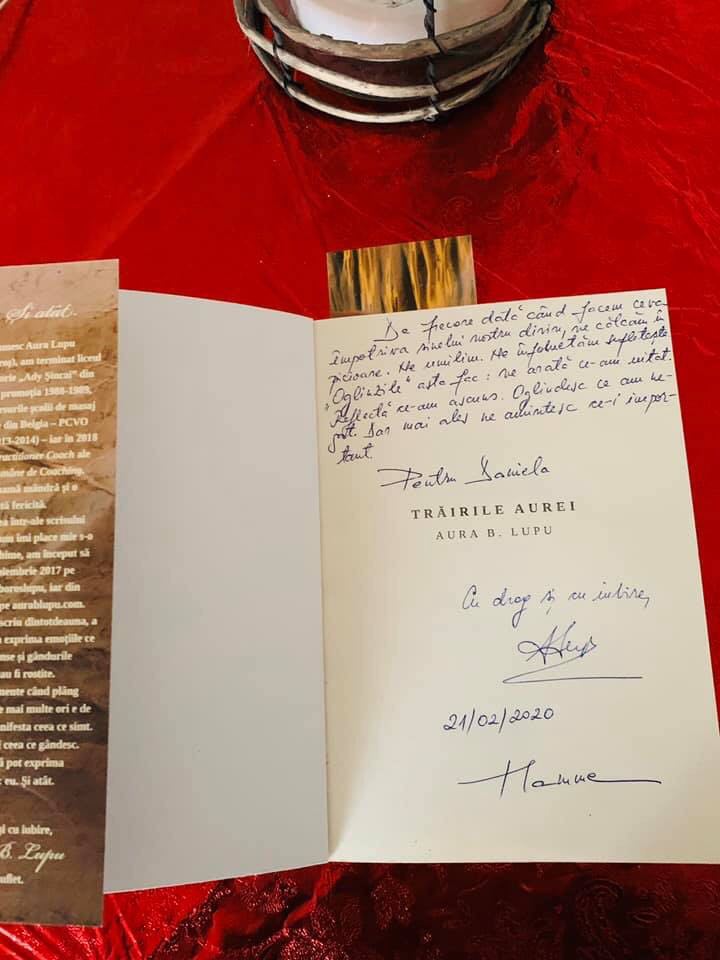 Și atât.
umesc Aura Lupu
roș), am terminat liceul
orie „Ady Șincai” din
promoția 1988-1989.
rsurile școlii de masaj
e din Belgia – PCVO
013-2014) – iar în 2018
ractitioner Coach ale
omâne de Coaching.
amă mândră și o
tă fericită.
ea într-ale scrisului
um îmi place mie s-o
hime, am început să
oiembrie 2017 pe
boroslupu, iar din
pe aurablupu.com.
scriu dintotdeauna, a
a exprima emoțiile ce
nse și gândurile
au fi rostite.
mente când plâng
e mai multe ori e de
nifesta ceea ce simt.
i ceea ce gândesc.
ă pot exprima
: eu. Și atât.
și cu iubire,
B. Lupu
uflet.
De fiecare dată când facem ceva
împotriva sinelui nostru divin, ne călcăm în
picioare. Ne umilim. Ne înfometăm sufletește
"Oglinzile" asta fac: ne arată ce-am uitat.
Reflectă ce-am ascuns. Oglindesc ce am ne-
gat. Dar mai ales ne amintesc ce-i impor-
tant.
Pentru Daniela
TRĂIRILE AUREI
AURA B. LUPU
Cu drag și cu iubire,
21/02/2020
Hamme